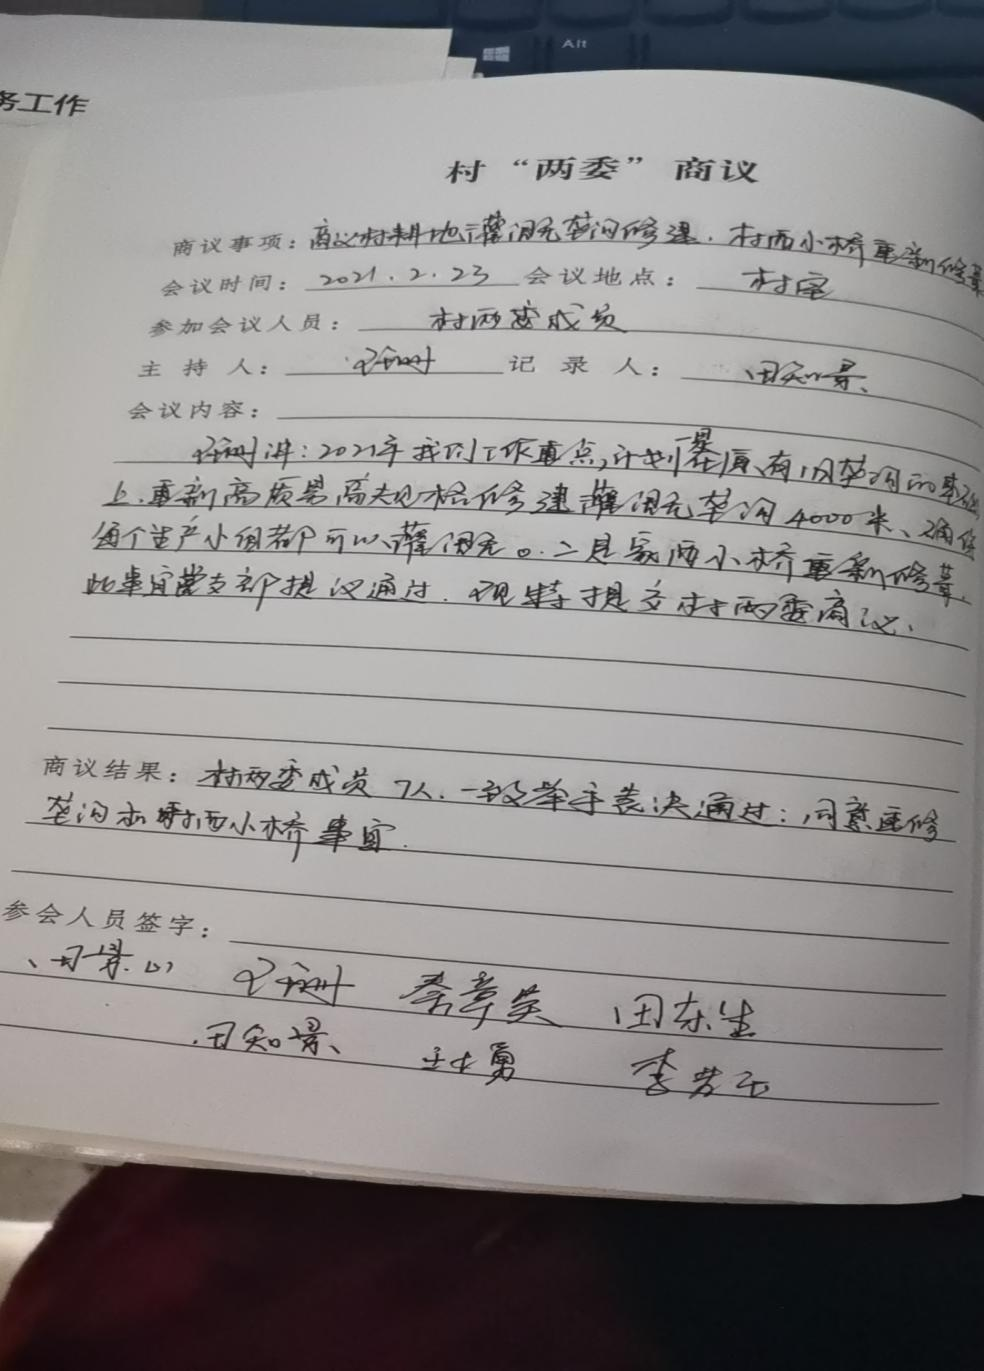 Alt
务工作
村“两委”商议
商议事项：商议村耕地灌溉垄沟修建．村西小桥重新修葺
会议时间：2021.2.23 会议地点：村室
参加会议人员：村两委成员
主持人： 记录人：田知景
会议内容：
讲：2021年我们工作重点，计划在原有旧垄沟的基础
上．重新高质量高规格修建灌溉垄沟4000米、确保
每个生产小组都可以灌溉。二是家西小桥重新修葺．
此事宜党支部提议通过．现特提交村两委商议、
商议结果：村两委成员7人．一致举手表决通过：同意建修
垄沟和村西小桥事宜．
参会人员签字：
秦章英 田东生
田知景 勇 李